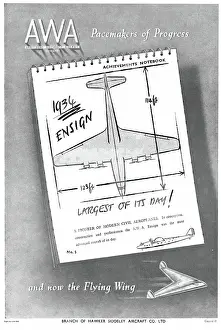 AWA
Pacemakers of Progress
ACHIEVEMENTS NOTEBOOK
1934
ENSIGN
123ft
LARGEST OF ITS DAY!
A PIONEER OF MODERN CIVIL AEROPLANES. In conception,
construction and performance the A.W. Ensign was the most
advanced aircraft of its day
No. 5
and now the Flying Wing
BRANCH OF HAWKER SIDDELEY AIRCRAFT CO. LTD